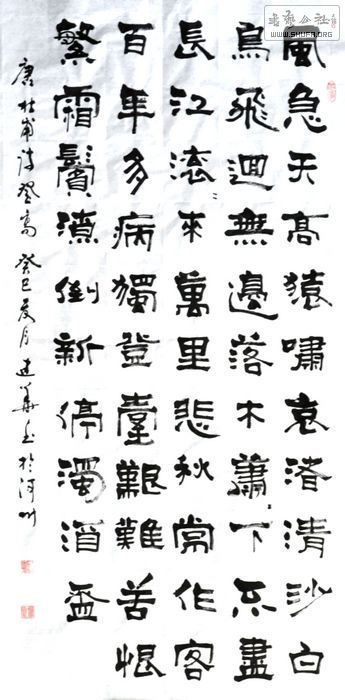 書藝公社
WWW.SHUFA.ORG
風急天高猿嘯哀渚清沙白
鳥飛迴無邊落木蕭〻下不盡
長江滚〻來萬里悲秋常作客
百年多病獨登臺艱難苦恨
繁霜鬢潦倒新停濁酒盃
唐杜甫诗登高 癸巳夏月 於河州